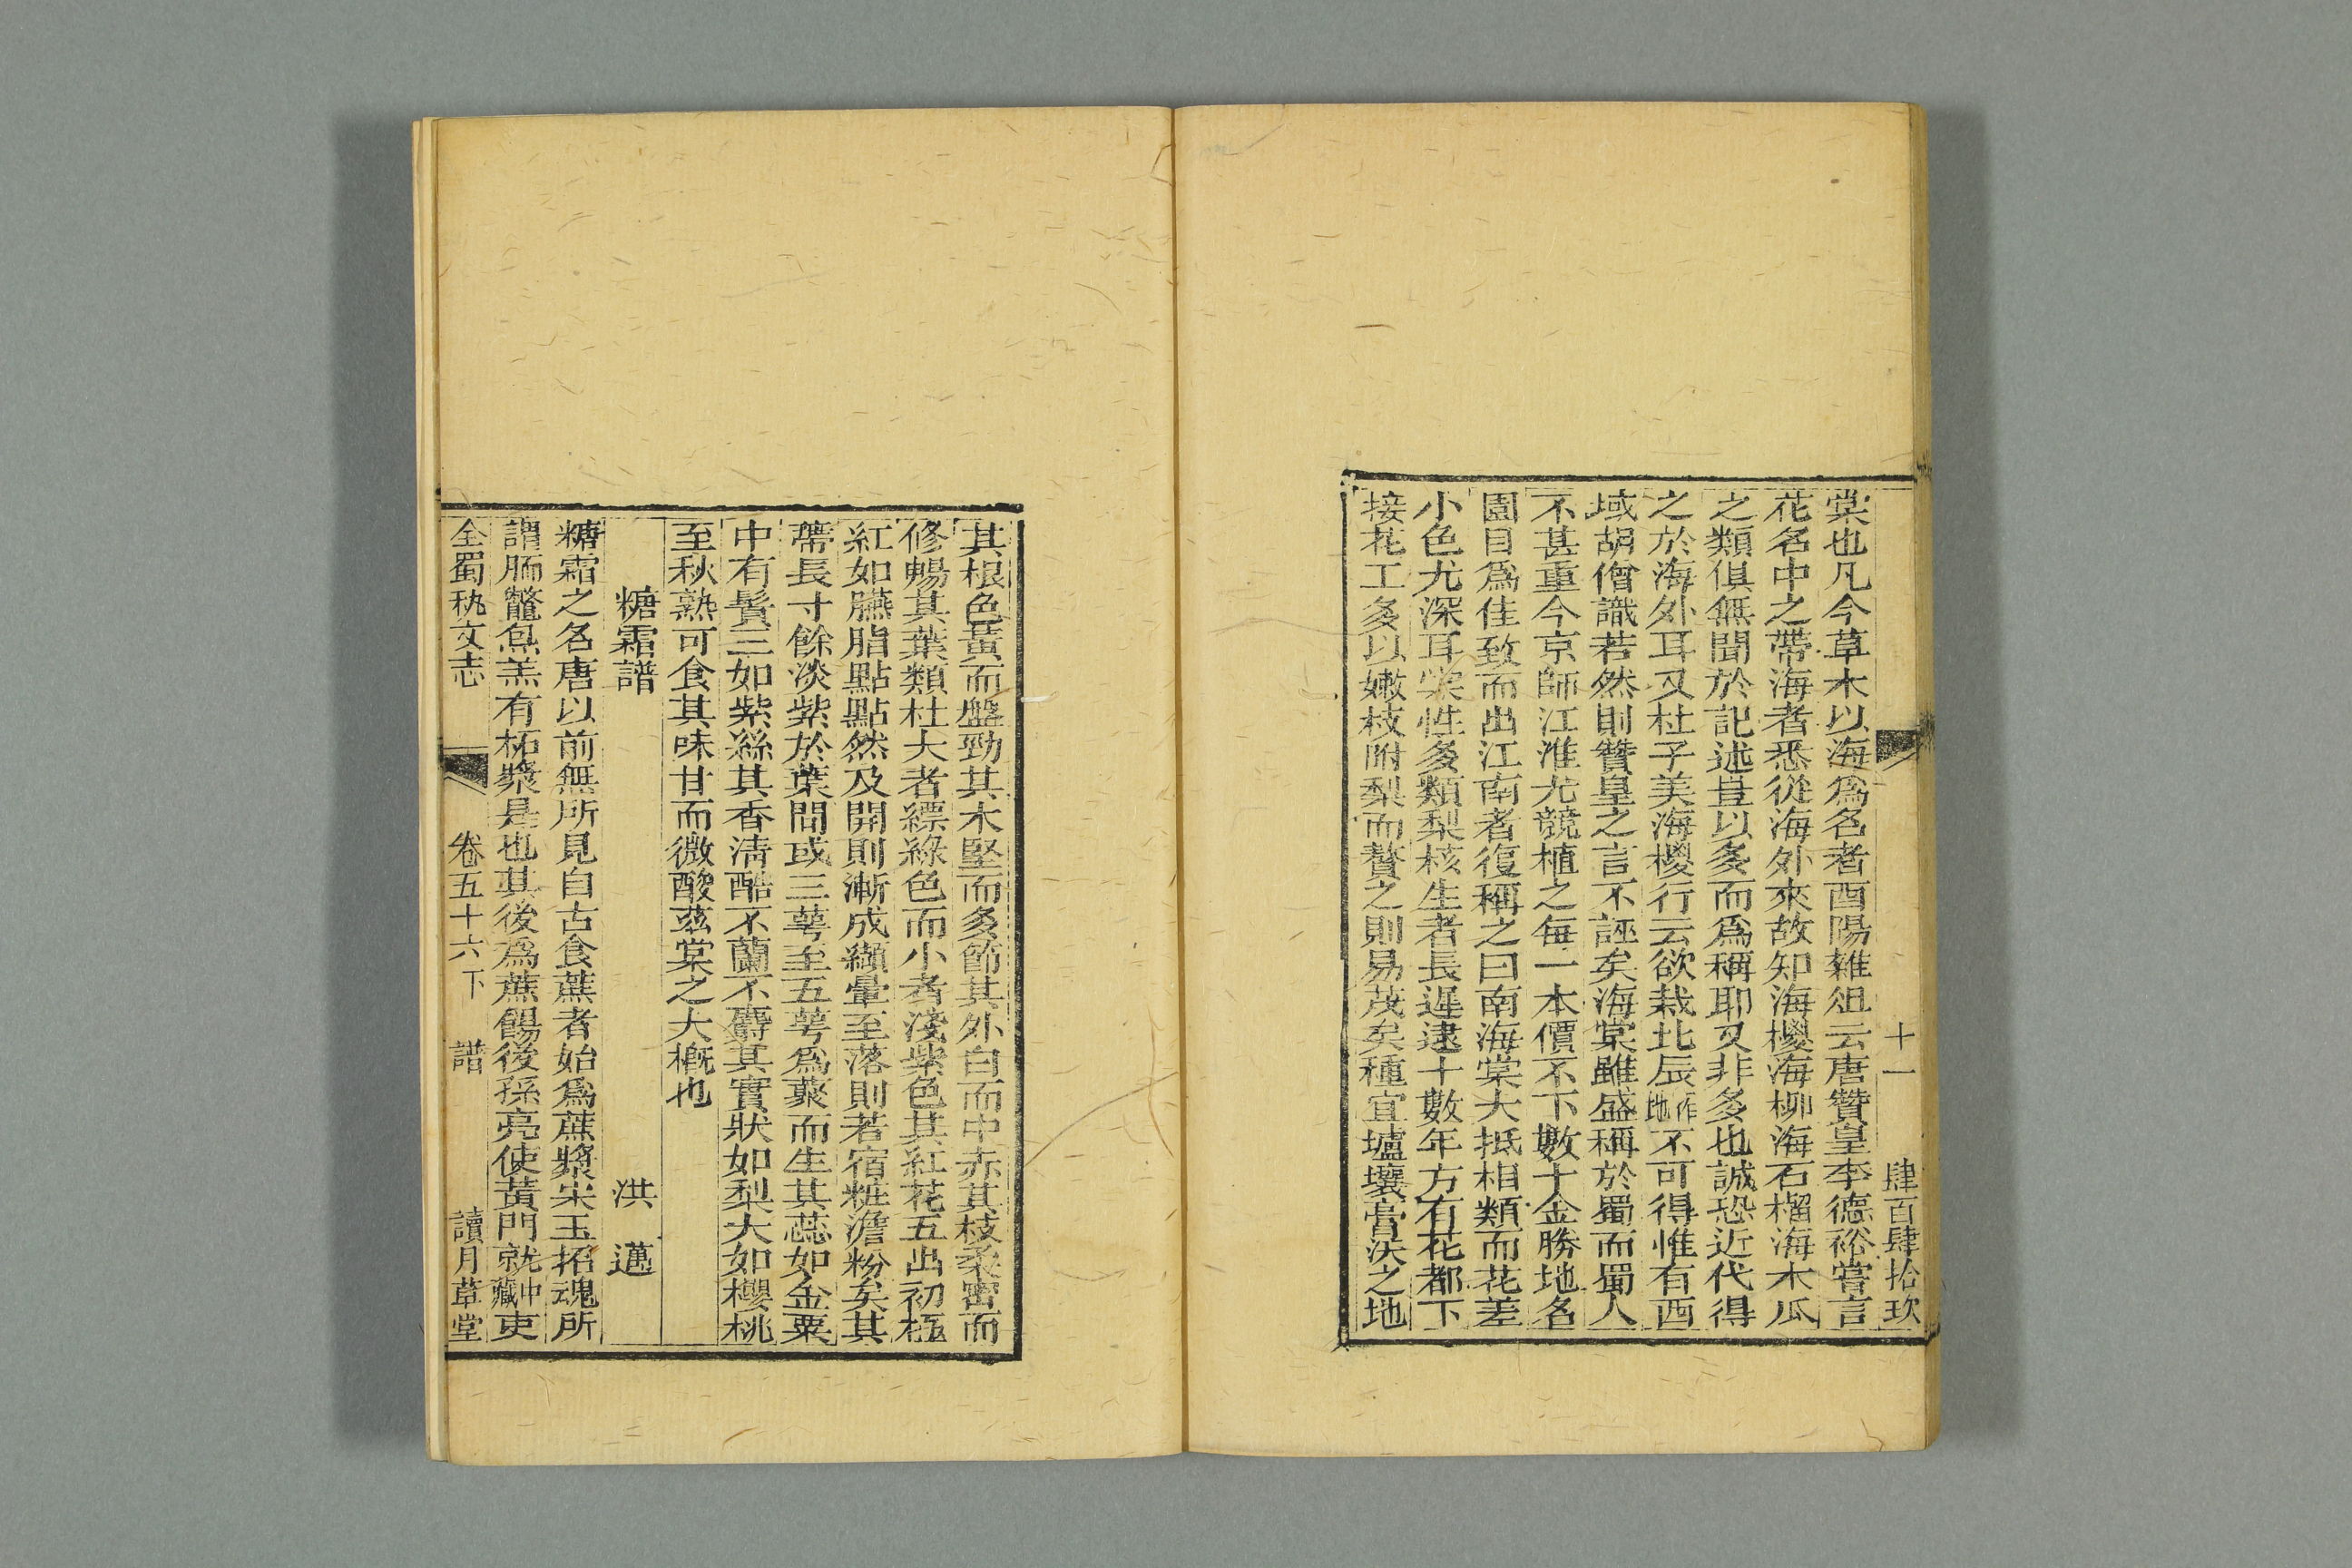 十一 肆百肆拾玖
棠也凡今草木以海爲名者酉陽雜俎云唐贊皇李德裕嘗言
花名中之帶海者悉從海外來故知海椶海柳海石榴海木瓜
之類俱無聞於記述豈以多而爲稱耶又非多也誠恐近代得
之於海外耳又杜子美海椶行云欲栽北辰作地不可得惟有西
域胡僧識若然則贊皇之言不誣矣海棠雖盛稱於蜀而蜀人
不甚重今京師江淮尤競植之每一本價不下數十金勝地名
園目爲佳致而出江南者復稱之曰南海棠大抵相類而花差
小色尤深耳棠性多類梨核生者長遲逮十數年方有花都下
接花工多以嫩枝附梨而贅之則易茂矣種宜壚壤膏沃之地
其根色黃而盤勁其木堅而多節其外白而中赤其枝柔密而
修暢其葉類杜大者縹綠色而小者淺紫色其紅花五出初極
紅如臙脂點點然及開則漸成纈暈至落則若宿粧澹粉矣其
蔕長寸餘淡紫於葉間或三萼至五萼爲藂而生其蕊如金粟
中有鬚三如紫絲其香清酷不蘭不麝其實狀如梨大如櫻桃
至秋熟可食其味甘而微酸茲棠之大概也
糖霜譜 洪邁
糖霜之名唐以前無所見自古食蔗者始爲蔗漿宋玉招魂所
謂胹鼈炰羔有柘漿是也其後爲蔗餳後孫亮使黃門就中藏吏
全蜀秇文志 卷五十六下 譜 讀月草堂